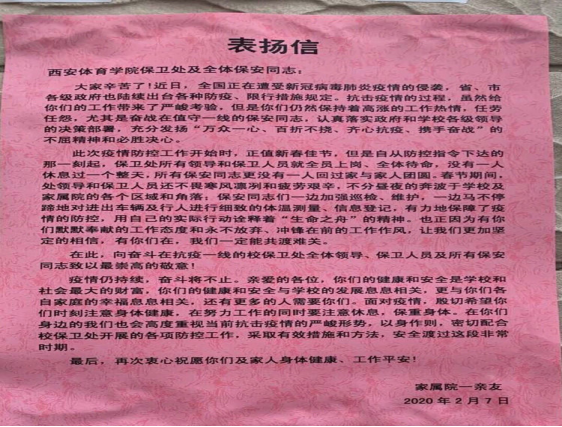 表扬信
西安体育学院保卫处及全体保安同志：
大家辛苦了！近日，全国正在遭受新冠病毒肺炎疫情的侵袭，省、市
各级政府也陆续出台各种防疫、限行措施规定。抗击疫情的过程，虽然给
你们的工作带来了严峻考验，但是你们仍然保持着高涨的工作热情，任劳
任怨，尤其是奋战在值守一线的保安同志，认真落实政府和学校各级领导
的决策部署，充分发扬“万众一心、百折不挠、齐心抗疫、携手奋战”的
不屈精神和必胜决心。
此次疫情防控工作开始时，正值新春佳节，但是自从防控指令下达的
那一刻起，保卫处所有领导和保卫人员就全员上岗、全体待命，没有一人
休息过一个整天，所有保安同志更没有一人回过家与家人团圆。春节期间，
处领导和保卫人员还不畏寒风凛冽和疲劳艰辛，不分昼夜的奔波于学校及
家属院的各个区域和角落，保安同志们一边加强巡检、维护，一边马不停
蹄地对进出车辆及行人进行细致的体温测量、信息登记，有力地保障了疫
情的防控，用自己的实际行动诠释着“生命之舟”的精神。也正因为有你
们默默奉献的工作态度和永不放弃、冲锋在前的工作作风，让我们更加坚
定的相信，有你们在，我们一定能共渡难关。
在此，向奋斗在抗疫一线的校保卫处全体领导、保卫人员及所有保安
同志致以最崇高的敬意！
疫情仍持续，奋斗将不止。亲爱的各位，你们的健康和安全是学校和
社会最大的财富，你们的健康和安全与学校的发展息息相关，更与你们各
自家庭的幸福息息相关，还有更多的人需要你们。面对疫情，殷切希望你
们时刻注意身体健康，在努力工作的同时要注意休息，保重身体。在你们
身边的我们也会高度重视当前抗击疫情的严峻形势，以身作则，密切配合
校保卫处开展的各项防控工作，采取有效措施和方法，安全渡过这段非常
时期。
最后，再次衷心祝愿你们及家人身体健康、工作平安！
家属院一亲友
2020年2月7日